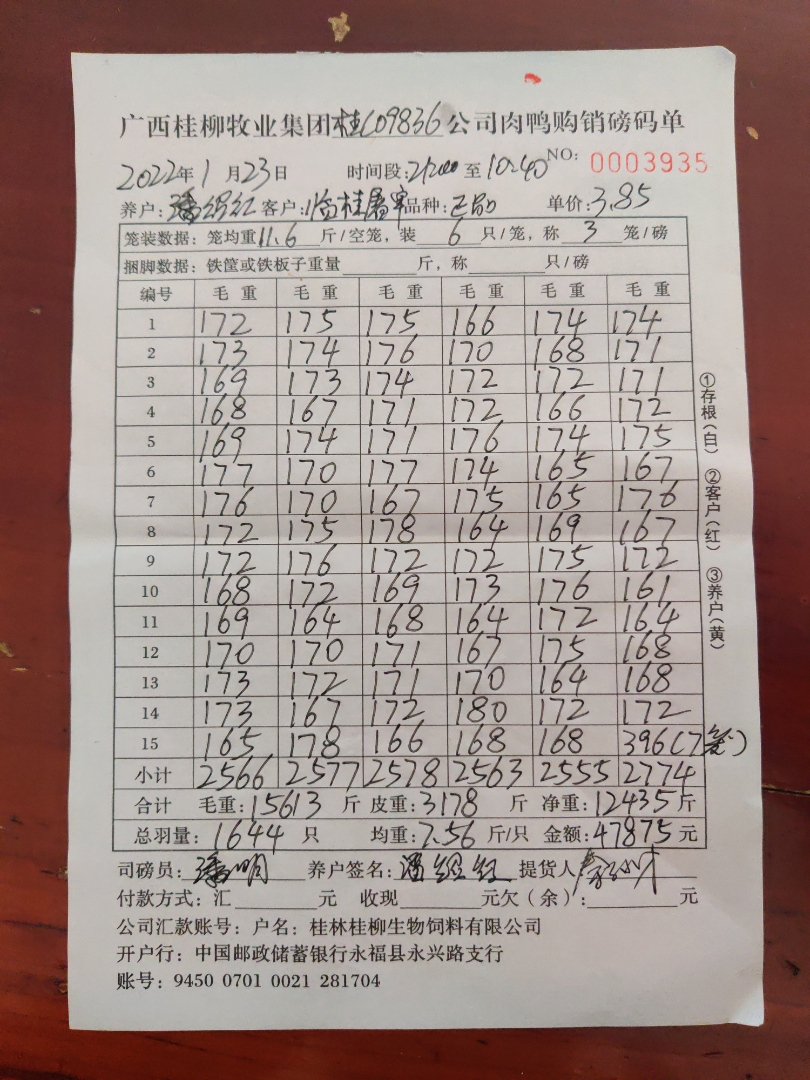 广西桂柳牧业集团桂C09836公司肉鸭购销磅码单
2022年1月23日 时间段: 至10:40 NO: 0003935
养户:潘绍红 客户:临桂屠宰 品种:正品 单价:3.85
笼装数据:笼均重11.6斤/空笼,装6只/笼,称3笼/磅
捆脚数据:铁筐或铁板子重量 斤,称 只/磅
编号 毛重 毛重 毛重 毛重 毛重 毛重
1 172 175 175 166 174 174
2 173 174 176 170 168 171
3 169 173 174 172 172 171
4 168 167 171 172 166 172
5 169 174 171 176 174 175
6 177 170 177 174 165 167
7 176 170 167 175 165 176
8 172 175 178 164 169 167
9 172 176 172 172 175 172
10 168 172 169 173 176 161
11 169 164 168 164 172 164
12 170 170 171 167 175 168
13 173 172 171 170 164 168
14 173 167 172 180 172 172
15 165 178 166 168 168 396(7笼)
小计 2566 2577 2578 2563 2555 2774
合计 毛重:15613斤 皮重:3178斤 净重:12435斤
总羽量:1644只 均重:7.56斤/只 金额:47875元
司磅员:潘明 养户签名: 提货人
付款方式:汇 收现 元欠(余): 元
公司汇款账号:户名:桂林桂柳生物饲料有限公司
开户行:中国邮政储蓄银行永福县永兴路支行
账号:9450 0701 0021 281704
①存根(白) ②客户(红) ③养户(黄)